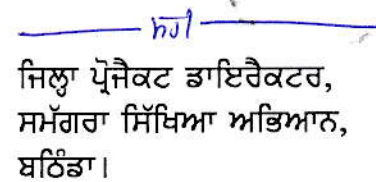 ਸਹੀ
ਜਿਲ੍ਹਾ ਪ੍ਰੋਜੈਕਟ ਡਾਇਰੈਕਟਰ,
ਸਮੱਗਰਾ ਸਿੱਖਿਆ ਅਭਿਆਨ,
ਬਠਿੰਡਾ।